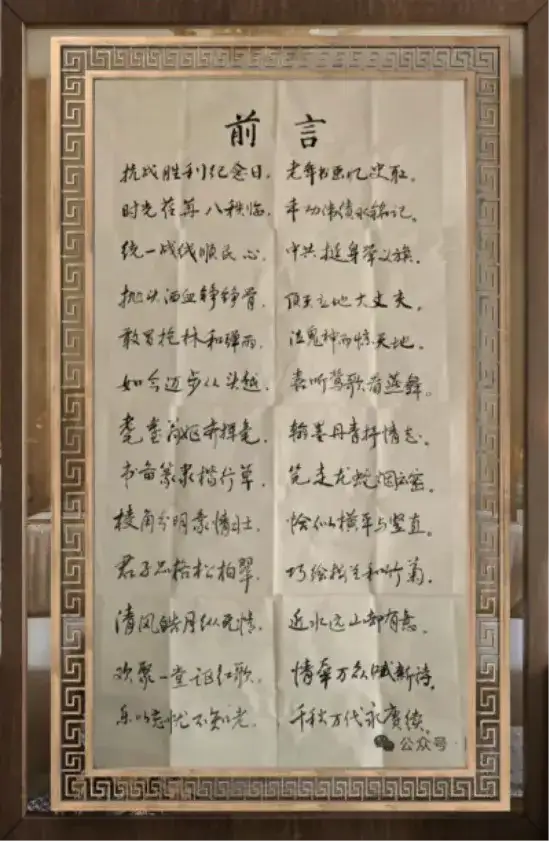 前言
抗战胜利纪念日，老年书画忆史取。
时光荏苒八秩临，丰功伟绩永铭记。
统一战线顺民心，中共挺身举义旗。
抛头洒血铮铮骨，顶天立地大丈夫。
敢冒枪林和弹雨，泣鬼神而惊天地。
如今迈步从头越，喜听莺歌看燕舞。
耄耋翁妪齐挥毫，翰墨丹青抒情志。
书画篆隶楷行草，笔走龙蛇烟云密。
棱角分明豪情壮，恰似横平与竖直。
君子品格松柏翠，巧绘梅兰和竹菊。
清风皓月纵无情，近水远山却有意。
欢聚一堂讴红歌，情牵万众赋新诗。
乐以忘忧不负光，千秋万代永赓续。
公众号·